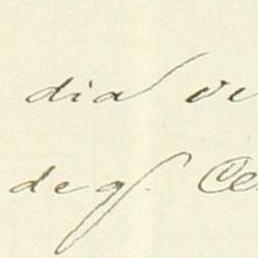 dia de
de q. Ce